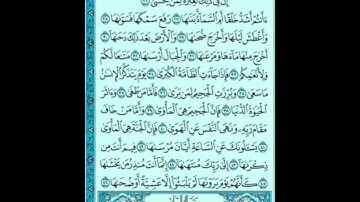 إِنَّ فِي ذَٰلِكَ لَعِبْرَةً لِّمَن يَخْشَىٰ ٢٦
ءَأَنتُمْ أَشَدُّ خَلْقًا أَمِ ٱلسَّمَآءُ بَنَىٰهَا ٢٧ رَفَعَ سَمْكَهَا فَسَوَّىٰهَا ٢٨
وَأَغْطَشَ لَيْلَهَا وَأَخْرَجَ ضُحَىٰهَا ٢٩ وَٱلْأَرْضَ بَعْدَ ذَٰلِكَ دَحَىٰهَآ ٣٠
أَخْرَجَ مِنْهَا مَآءَهَا وَمَرْعَىٰهَا ٣١ وَٱلْجِبَالَ أَرْسَىٰهَا ٣٢ مَتَٰعًا لَّكُمْ
وَلِأَنْعَٰمِكُمْ ٣٣ فَإِذَا جَآءَتِ ٱلطَّآمَّةُ ٱلْكُبْرَىٰ ٣٤ يَوْمَ يَتَذَكَّرُ ٱلْإِنسَٰنُ
مَا سَعَىٰ ٣٥ وَبُرِّزَتِ ٱلْجَحِيمُ لِمَن يَرَىٰ ٣٦ فَأَمَّا مَن طَغَىٰ ٣٧ وَءَاثَرَ
ٱلْحَيَوٰةَ ٱلدُّنْيَا ٣٨ فَإِنَّ ٱلْجَحِيمَ هِيَ ٱلْمَأْوَىٰ ٣٩ وَأَمَّا مَنْ خَافَ
مَقَامَ رَبِّهِۦ وَنَهَى ٱلنَّفْسَ عَنِ ٱلْهَوَىٰ ٤٠ فَإِنَّ ٱلْجَنَّةَ هِيَ ٱلْمَأْوَىٰ
٤١ يَسْـَٔلُونَكَ عَنِ ٱلسَّاعَةِ أَيَّانَ مُرْسَىٰهَا ٤٢ فِيمَ أَنتَ مِن
ذِكْرَىٰهَآ ٤٣ إِلَىٰ رَبِّكَ مُنتَهَىٰهَآ ٤٤ إِنَّمَآ أَنتَ مُنذِرُ مَن يَخْشَىٰهَا
٤٥ كَأَنَّهُمْ يَوْمَ يَرَوْنَهَا لَمْ يَلْبَثُوٓا۟ إِلَّا عَشِيَّةً أَوْ ضُحَىٰهَا ٤٦